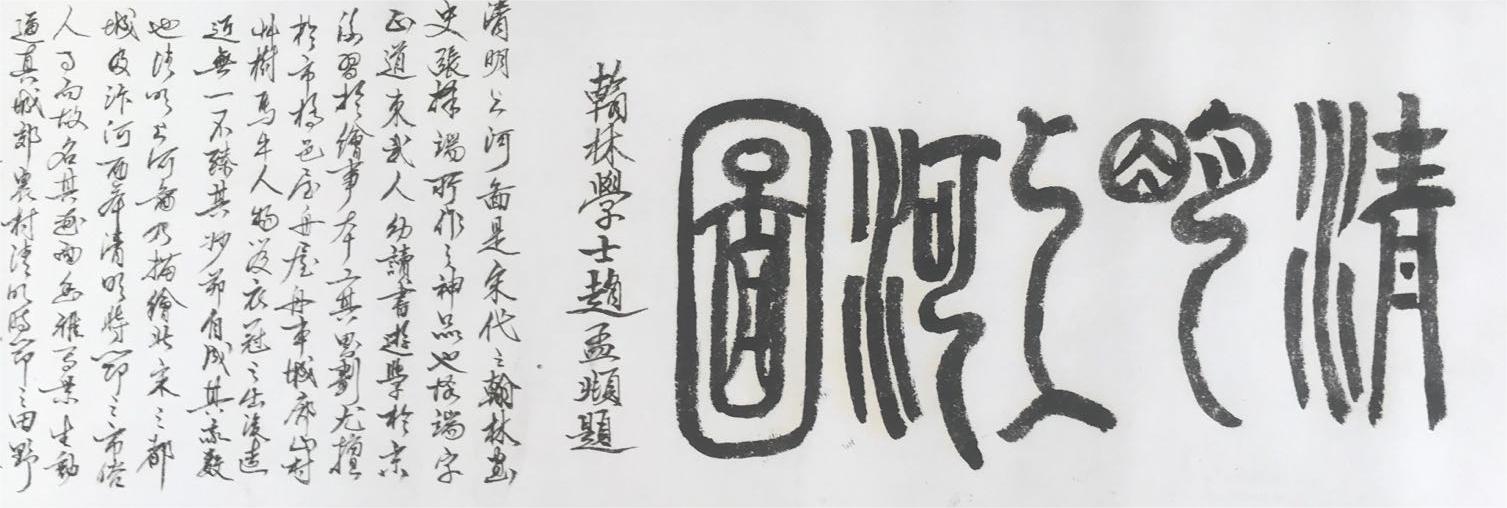 清明上河圖
翰林學士趙孟頫題
清明上河畫是宋代之翰林畫
史張擇端所作之神品也擇端字
正道東武人幼讀書遊學於京
後習於繪事本工其界劃尤擅
於市橋邑屋舟屋舟車城廓山村
艸樹馬牛人物及衣冠之出沒遠
近無一不臻其妙而自成其家數
也清明上河圖乃描繪北宋之都
城及汴河兩岸清明時節之市俗
人事而故名其畫面幽雅景生動
逼真城郊農村清明時節之田野